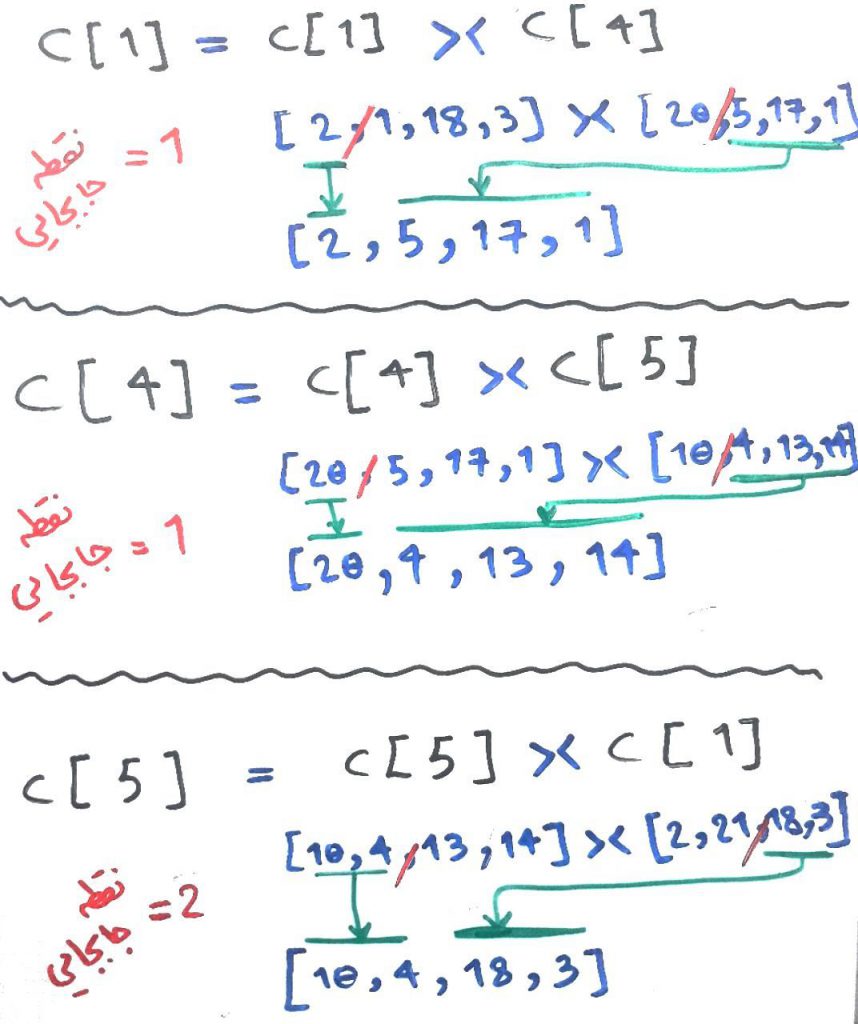 C[1] = C[1] >< C[4]
[2,1,18,3] >< [20,5,17,1]
نقطه
جابجایی = 1
[2,5,17,1]
C[4] = C[4] >< C[5]
[20,5,17,1] >< [10,4,13,14]
نقطه
جابجایی = 1
[20,4,13,14]
C[5] = C[5] >< C[1]
[10,4,13,14] >< [2,21,18,3]
نقطه
جابجایی = 2
[10,4,18,3]